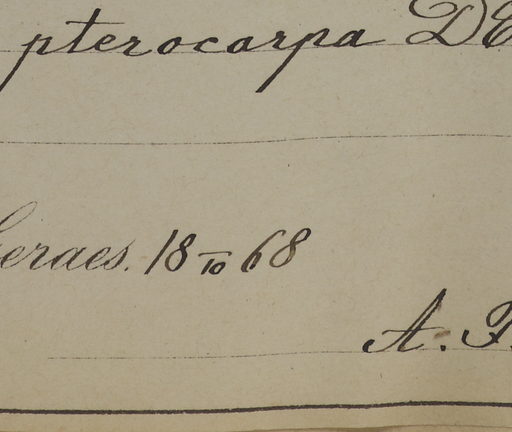 pterocarpa DC
eraes. 18 10 68
A.